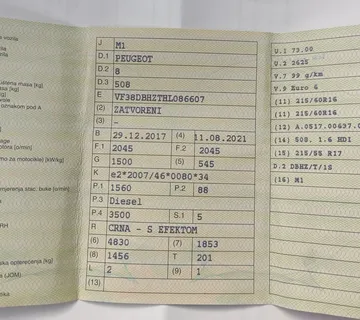 J M1
D.1 PEUGEOT
D.2 8
D.3 508
E VF38DBHZTHL086607
(2) ZATVORENI
(3) -
B 29.12.2017 (4) 11.08.2021
F.1 2045 F.2 2045
G 1500 (5) 545
K e2*2007/46*0080*34
P.1 1560 P.2 88
P.3 Diesel
P.4 3500 S.1 5
R CRNA - S EFEKTOM
(6) 4830 (7) 1853
(8) 1456 T 201
L 2 (9) 1
(13)
V.1 73,00
V.7 99 g/km
V.9 Euro 6
(11) 215/60R16
(11) 215/60R16
(14) 508, 1.6 HDI
(15) 215/55 R17
D.2 DBHZ/T/1S
(16) M1
masa [kg]
masa [kg]
vole
oznakom pod A
osage
motora [l/min]
mo za motocikle) [kW/kg]
RH
opterećenja [kg]
(JOM)